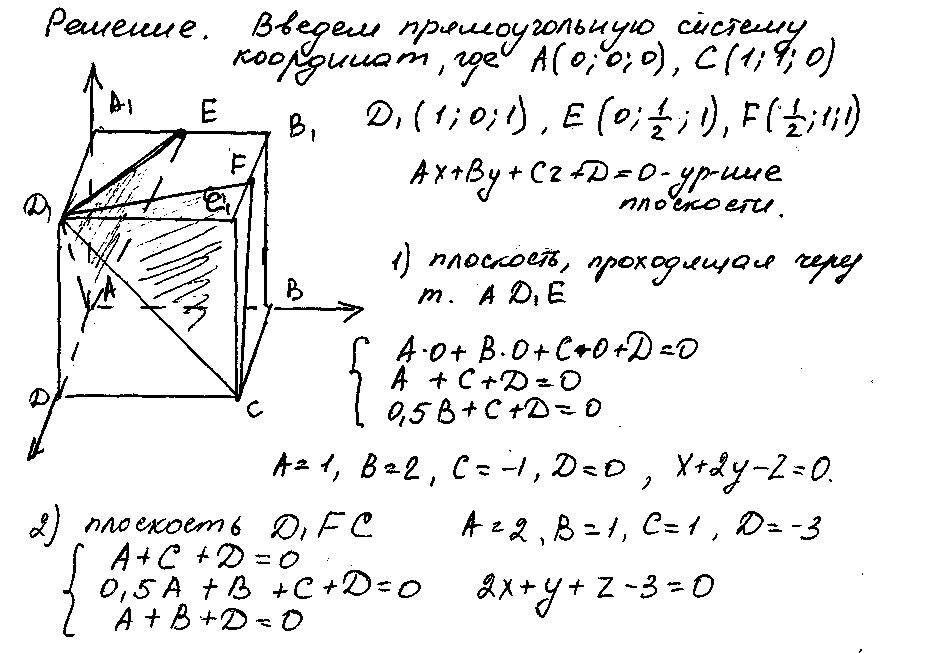 Решение. Введем прямоугольную систему
координат, где A(0;0;0), C(1;1;0)
D₁(1;0;1), E(0;1/2;1), F(1/2;1;1)
Ax+By+Cz+D=0-ур-ние
плоскости.
1) плоскость, проходящая через
т. A D₁E
A·0+B·0+C·0+D=0
A +C+D=0
0,5B+C+D=0
A=1, B=2, C=-1, D=0, x+2y-z=0.
2) плоскость D₁FC A=2, B=1, C=1, D=-3
A+C+D=0
0,5A+B+C+D=0 2x+y+z-3=0
A+B+D=0
A₁
E
B₁
F
D₁
C₁
A
B
D
C